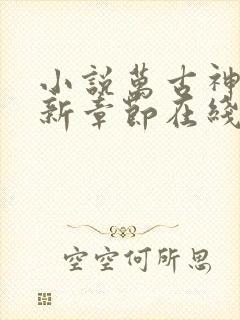 小説萬古神
新章節在綫
空空何所思